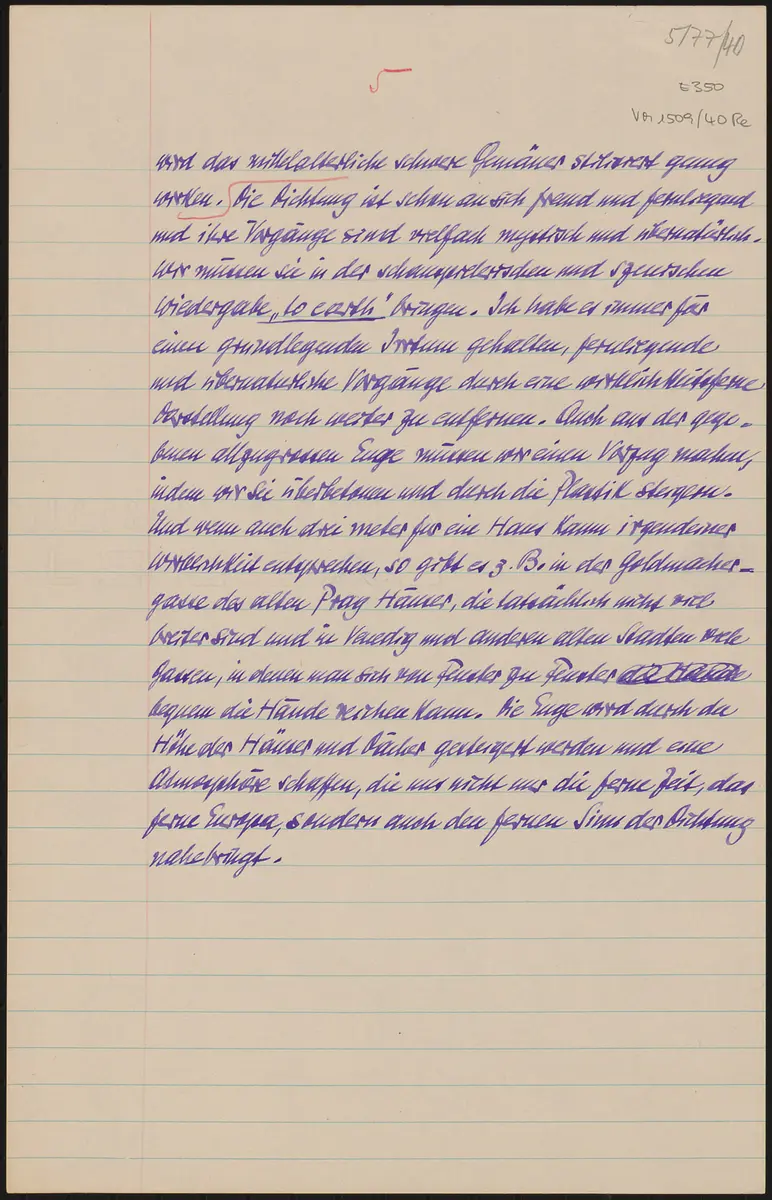 5/77/40
5
E350
VM 1509/40 Re
wird das mittelalterliche schwere Gemäuer stilisiert genug
wirken. Die Dichtung ist schon an sich fremd und fernliegend
und ihre Vorgänge sind vielfach mystisch und übernatürlich.
Wir müssen sie in der schauspielerischen und szenischen
Wiedergabe „to earth" bringen. Ich habe es immer für
einen grundlegenden Irrtum gehalten, fernliegende
und übernatürliche Vorgänge durch eine wirklichkeitsferne
Darstellung noch weiter zu entfernen. Auch aus der gege-
benen allzugrossen Enge müssen wir einen Vorzug machen,
indem wir sie überbetonen und durch die Plastik steigern.
Und wenn auch drei Meter für ein Haus kaum irgendeiner
Wirklichkeit entsprechen, so gibt es z. B. in der Goldmacher-
gasse des alten Prag Häuser, die tatsächlich nicht viel
breiter sind und in Venedig und anderen alten Städten viele
Gassen, in denen man sich von Fenster zu Fenster
bequem die Hände reichen kann. Die Enge wird durch die
Höhe der Häuser und Dächer gesteigert werden und eine
Atmosphäre schaffen, die uns nicht nur die ferne Zeit, das
ferne Europa, sondern auch den fernen Sinn der Dichtung
nahebringt.